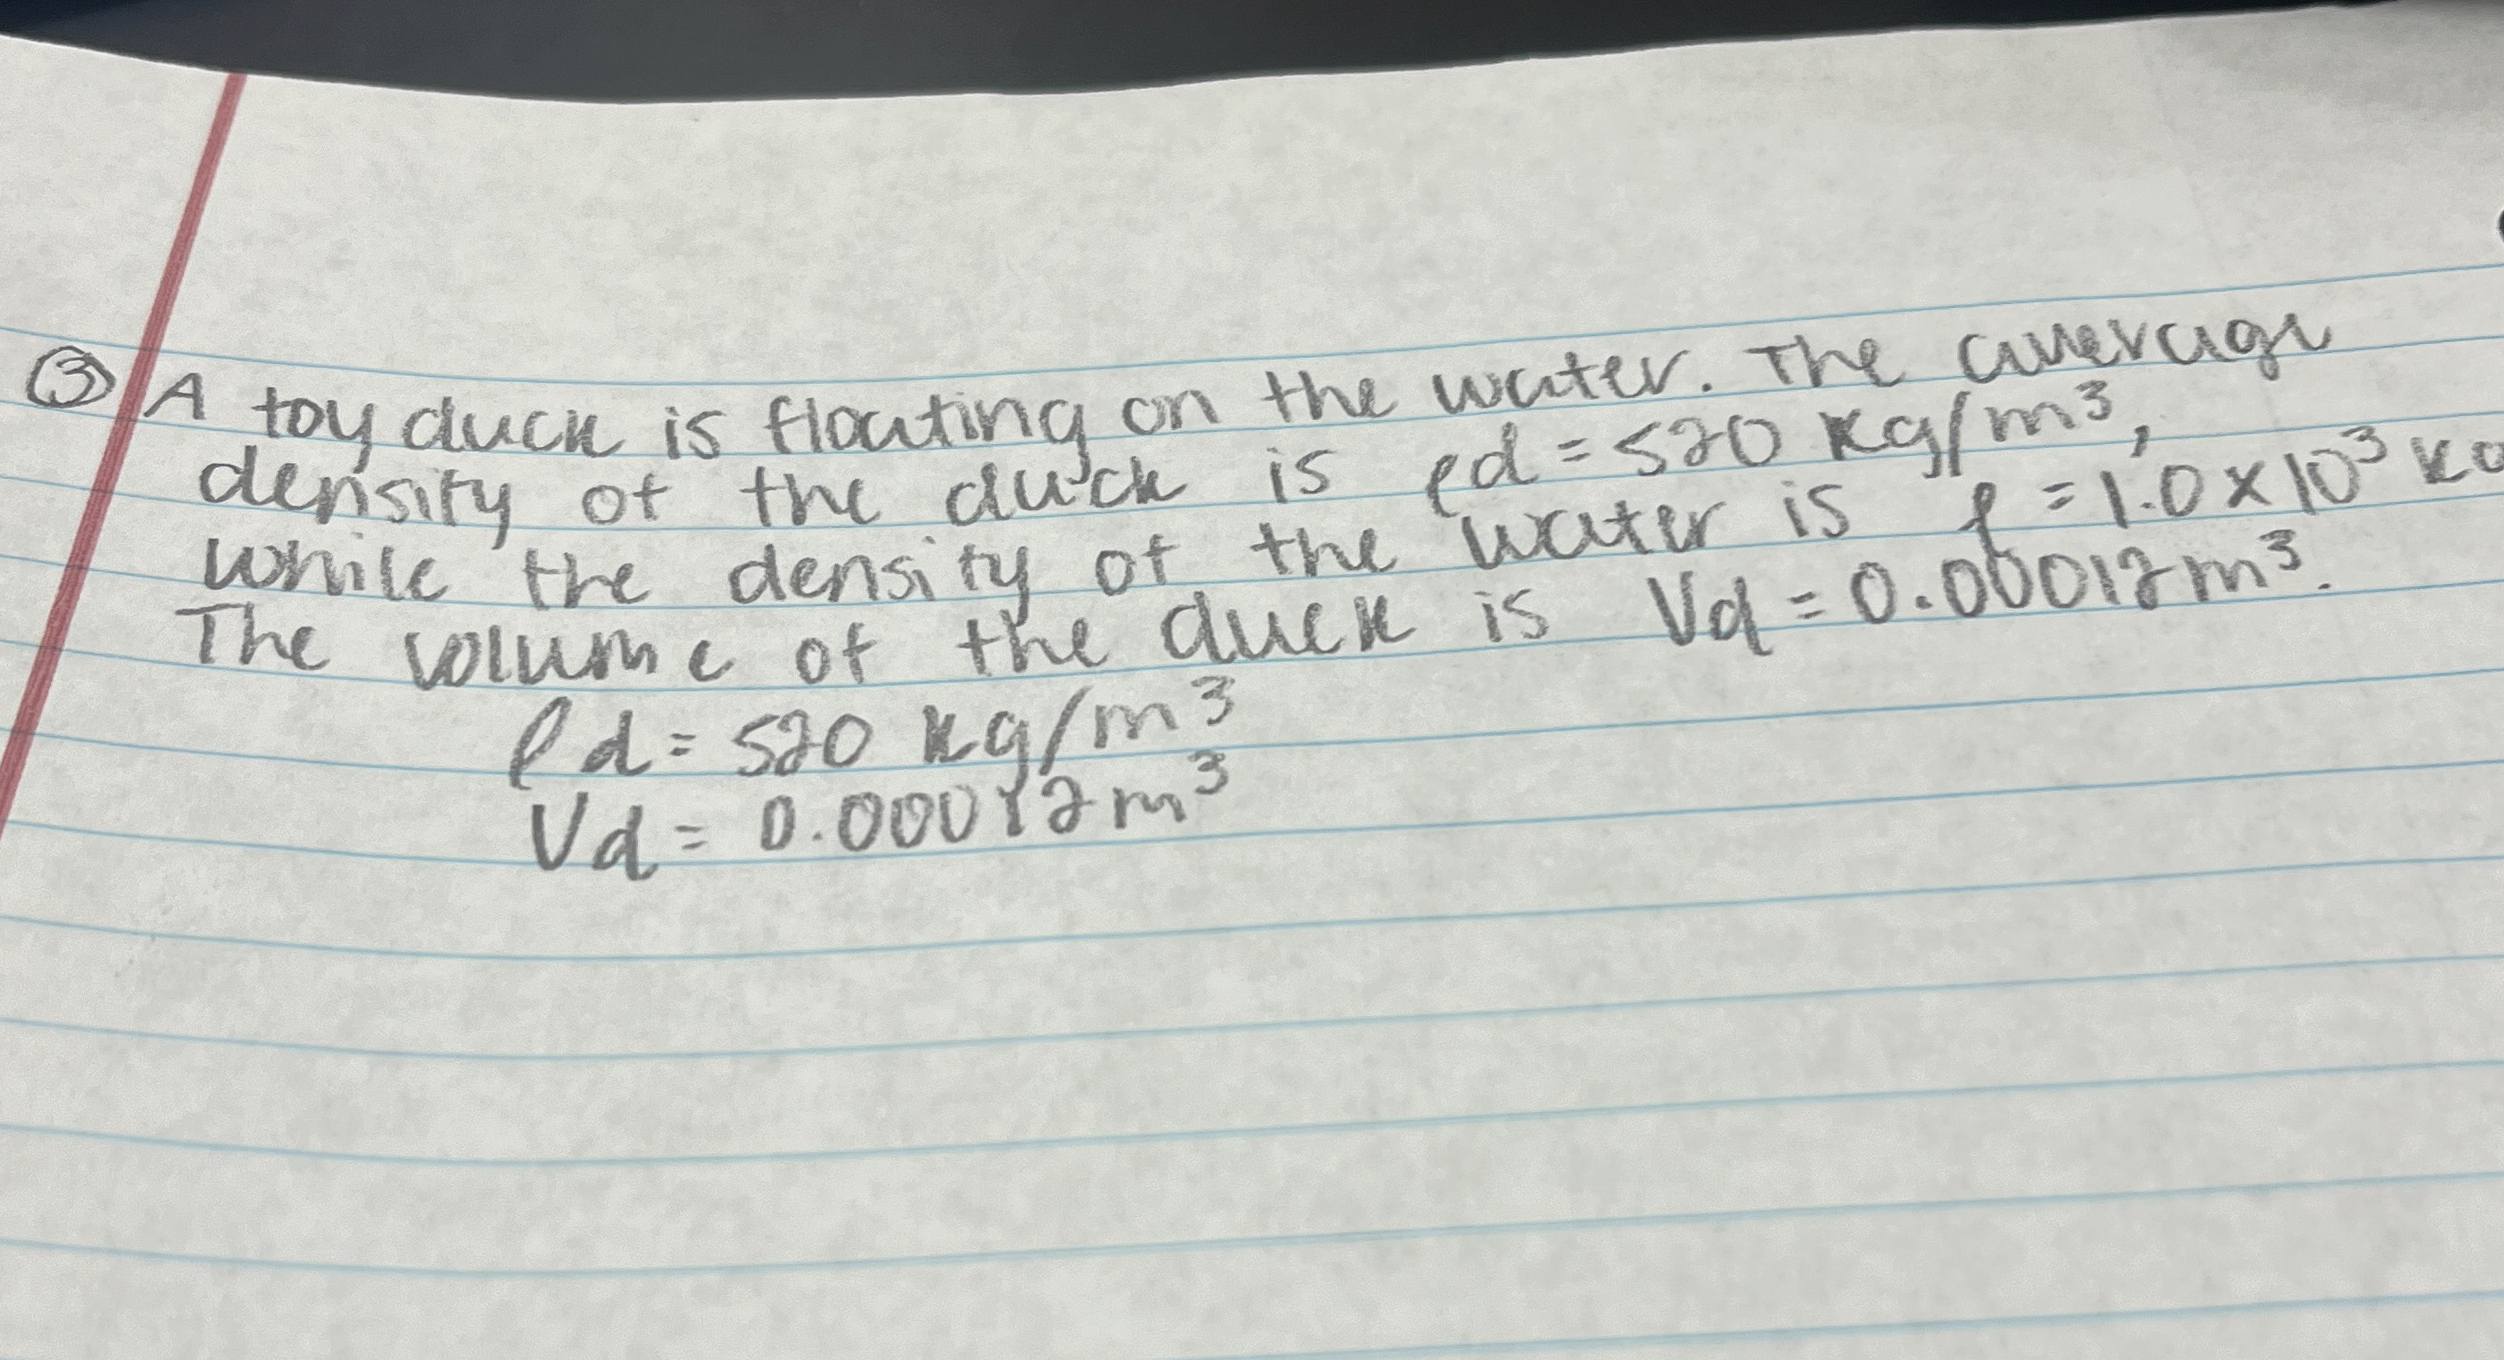 ③ A toy duck is floating on the water. The average
density of the duck is ρd = 520 kg/m³,
while the density of the water is ρ = 1.0 × 10³ kg
The volume of the duck is Vd = 0.00012 m³.
ρd = 520 kg/m³
Vd = 0.00012 m³